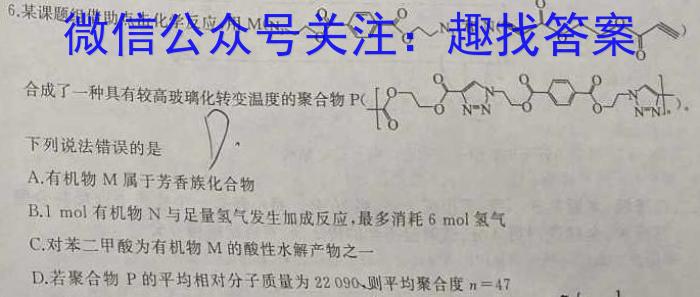 6.某课题组借助点击化学反应,用 M(
微信公众号关注：趣找答案
合成了一种具有较高玻璃化转变温度的聚合物 P(
O O O N N=N N N=N O O O O n )。
下列说法错误的是
A.有机物 M 属于芳香族化合物
B.1 mol 有机物 N 与足量氢气发生加成反应,最多消耗 6 mol 氢气
C.对苯二甲酸为有机物 M 的酸性水解产物之一
D.若聚合物 P 的平均相对分子质量为 22 090,则平均聚合度 n=47